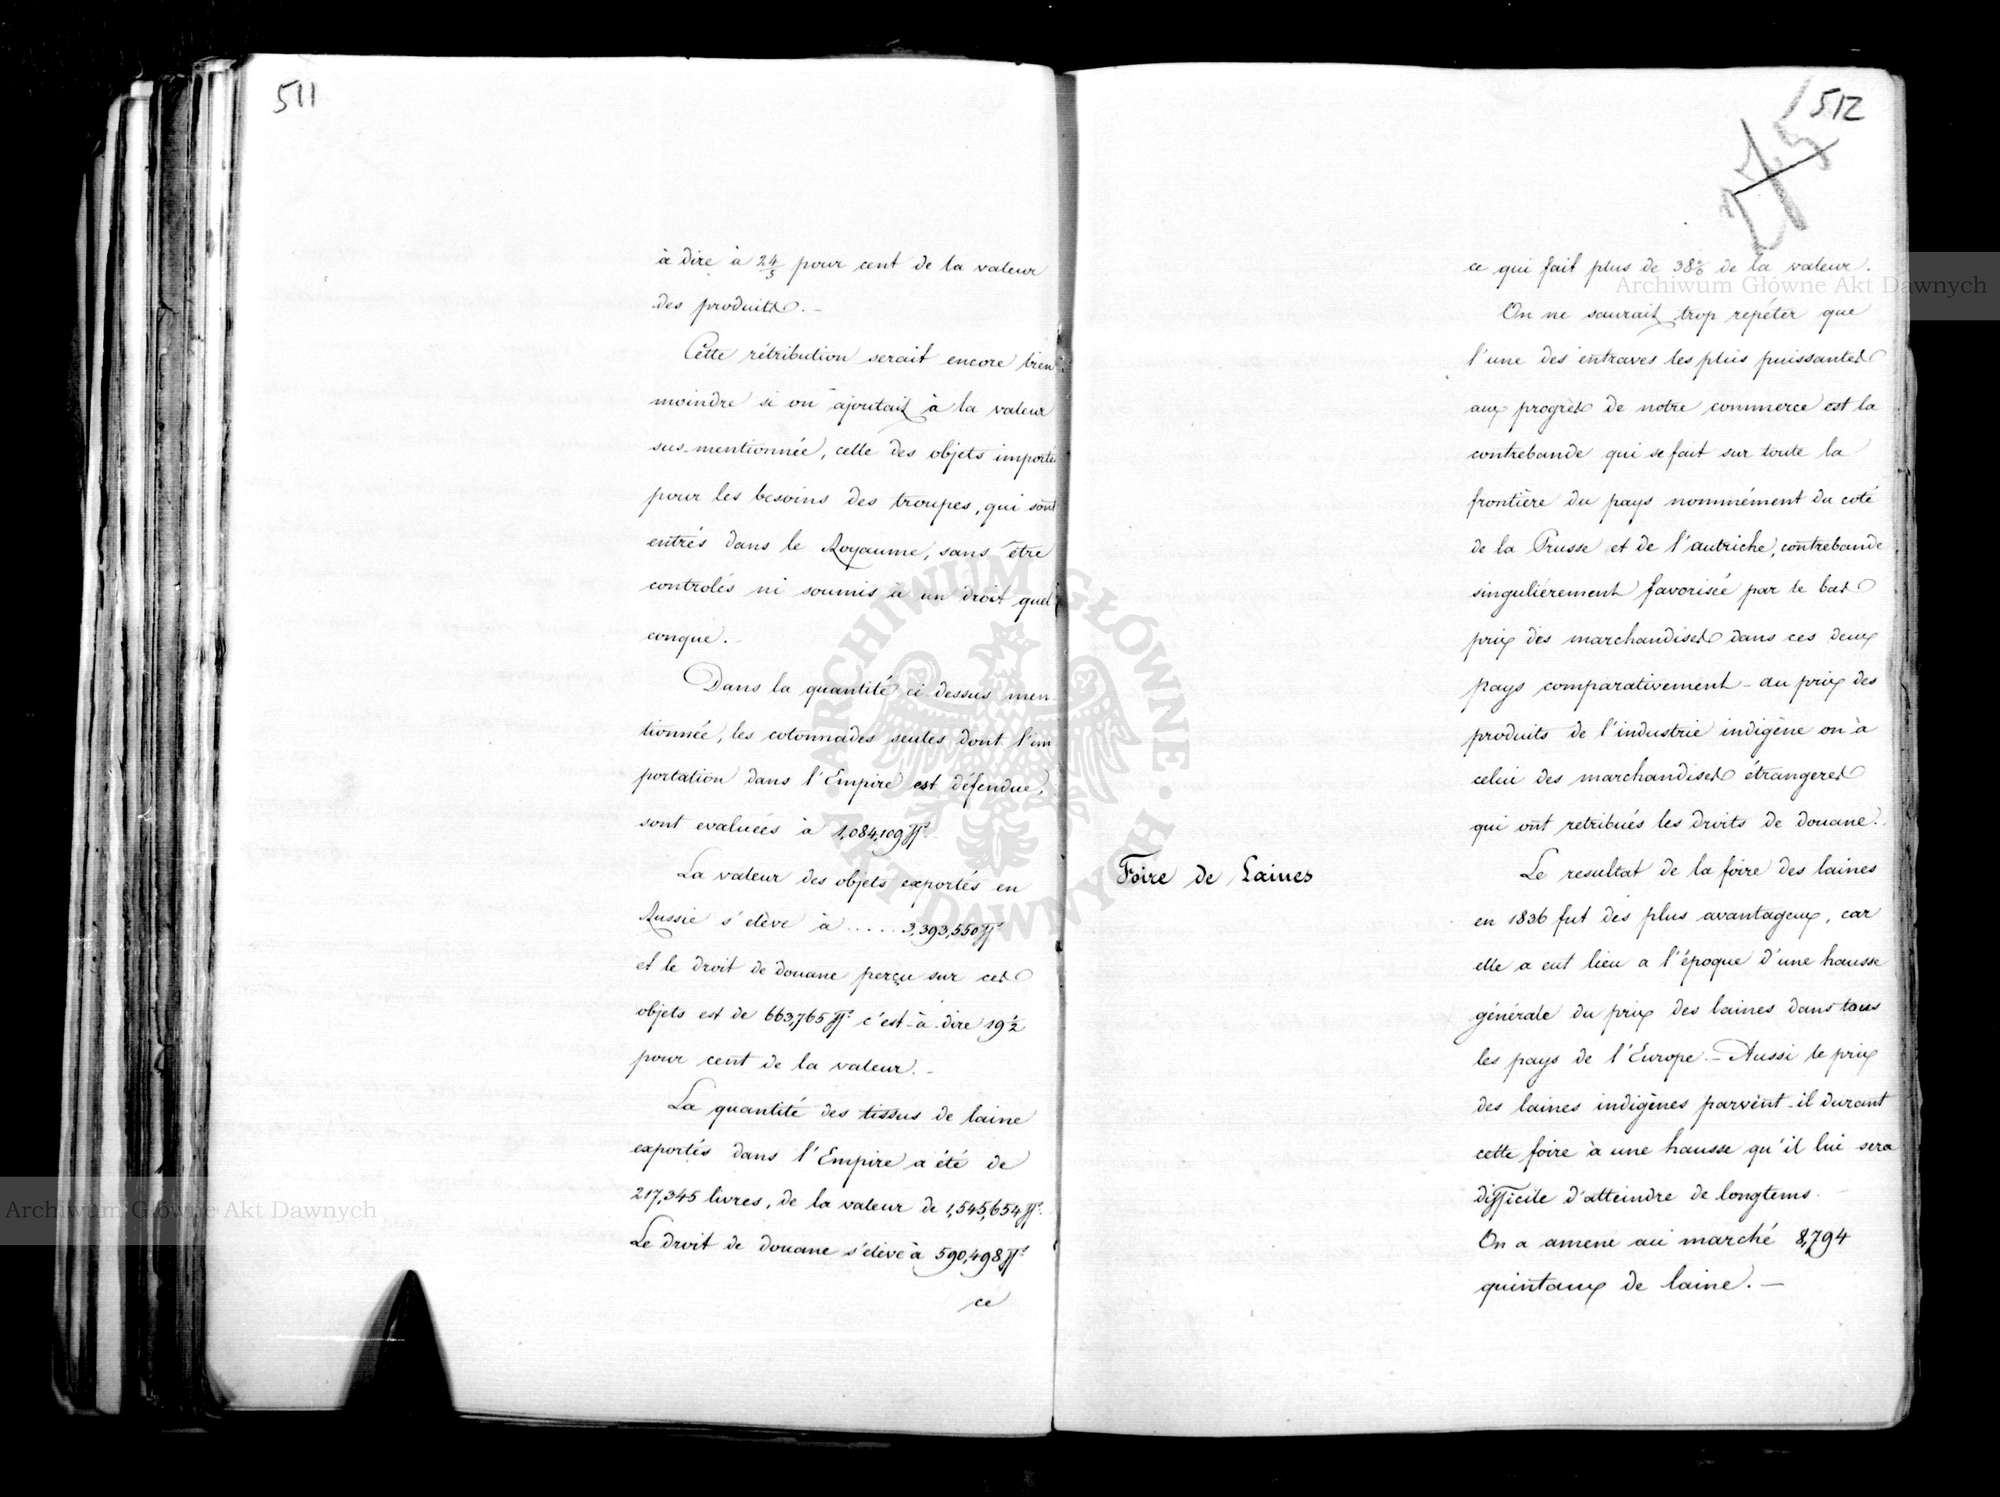 511
à dire à 2 4/5 pour cent de la valeur
des produits. -
Cette rétribution serait encore bien
moindre si on ajoutait à la valeur
sus-mentionnée, celle des objets importé
pour les besoins des troupes, qui sont
entrés dans le Royaume, sans être
controlés ni soumis à un droit quel
conque. -
Dans la quantité ci-dessus men-
tionnée, les cotonnades seules dont l'im
portation dans l'Empire est défendue,
sont evaluées à 1,084,109 ff.
La valeur des objets exportés en
Russie s'elève à ..... 3,393,550 ff.
et le droit de douane perçu sur ces
objets est de 663,765 ff. c'est-à-dire 19 1/2
pour cent de la valeur. -
La quantité des tissus de laine
exportés dans l'Empire a été de
217,345 livres, de la valeur de 1,545,654 ff.
Le droit de douane s'elève à 590,498 ff.
ce
512
275
ce qui fait plus de 38% de la valeur.
On ne saurait trop repéter que
l'une des entraves les plus puissantes
aux progrès de notre commerce est la
contrebande qui se fait sur toute la
frontière du pays nommément du coté
de la Prusse et de l'autriche, contrebande
singulièrement favorisée par le bas
prix des marchandises dans ces deux
pays comparativement - au prix des
produits de l'industrie indigène on à
celui des marchandises étrangeres
qui ont retribués les droits de douane. -
Foire de Laines
Le resultat de la foire des laines
en 1836 fut des plus avantageux, car
elle a eut lieu a l'époque d'une hausse
générale du prix des laines dans tous
les pays de l'Europe. - Aussi le prix
des laines indigènes parvint-il durant
cette foire à une hausse qu'il lui sera
difficile d'atteindre de longtems. -
On a amené au marché 8,794
quintaux de laine. -
Archiwum Główne Akt Dawnych
Archiwum Główne Akt Dawnych
ARCHIWUM GŁÓWNE AKT DAWNYCH